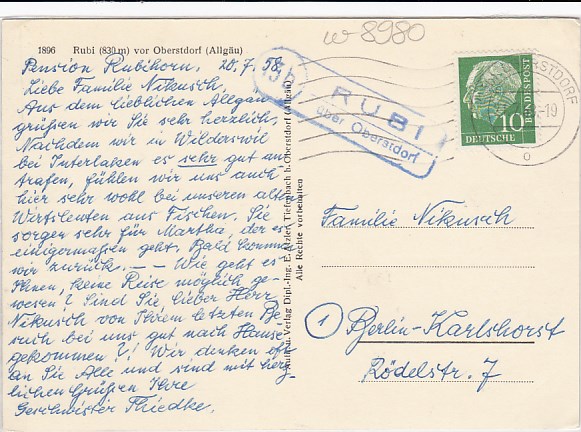 w-8980
1896 Rubi (830 m) vor Oberstdorf (Allgäu)
Pension Rubihorn, 20.7.58.
Liebe Familie Nikusch,
Aus dem lieblichen Allgäu
grüßen wir Sie sehr herzlich.
Nachdem wir in Wilderswil
bei Interlaken es sehr gut an-
trafen, fühlen wir uns auch
hier sehr wohl bei unseren alten
Wirtsleuten aus Fischen. Sie
sorgen sehr für Martha, der es
einigermaßen geht. Bald kommen
wir zurück. — Wie geht es
Ihnen, keine Reise möglich ge-
wesen? Sind Sie lieber Herr
Nikusch von Ihrem letzten Be-
such bei uns gut nach Hause
gekommen?! Wir denken oft
an Sie Alle und sind mit herz-
lichen Grüßen Ihre
Geschwister Thiedke.
Aufn. u. Verlag Dipl.-Ing. E. Atzler, Tiefenbach b. Oberstdorf (Allgäu)
Alle Rechte vorbehalten
13b
RUBI
über Oberstdorf
OBERSTDORF
-19
10
DEUTSCHE
BUNDESPOST
Familie Nikusch
1 Berlin-Karlshorst
Rödelstr. 7